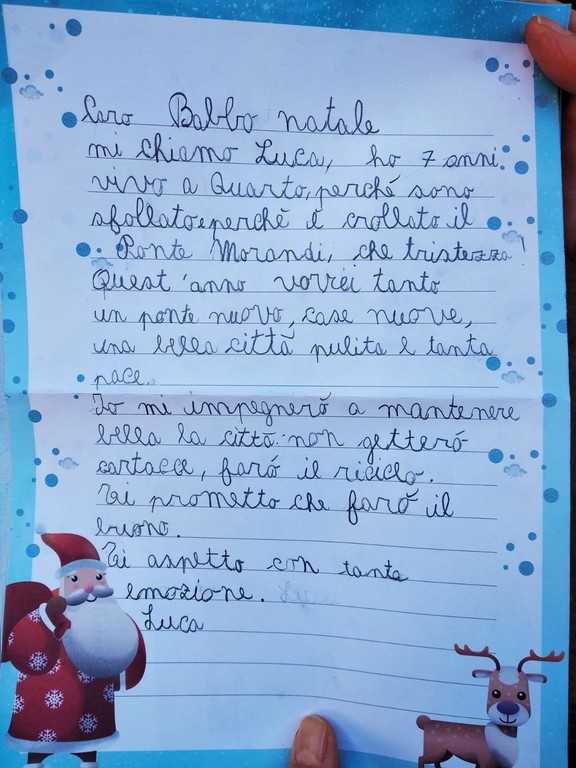 Caro Babbo natale
mi chiamo Luca, ho 7 anni
vivo a Quarto, perché sono
sfollato e perchè è crollato il
Ponte Morandi, che tristezza!
Quest'anno vorrei tanto
un ponte nuovo, case nuove,
una bella città pulita e tanta
pace.
Io mi impegneró a mantenere
bella la città: non getteró
cartacce, faró il riciclo.
Ti prometto che faró il
buono.
Ti aspetto con tanta
emozione. Luca
Luca